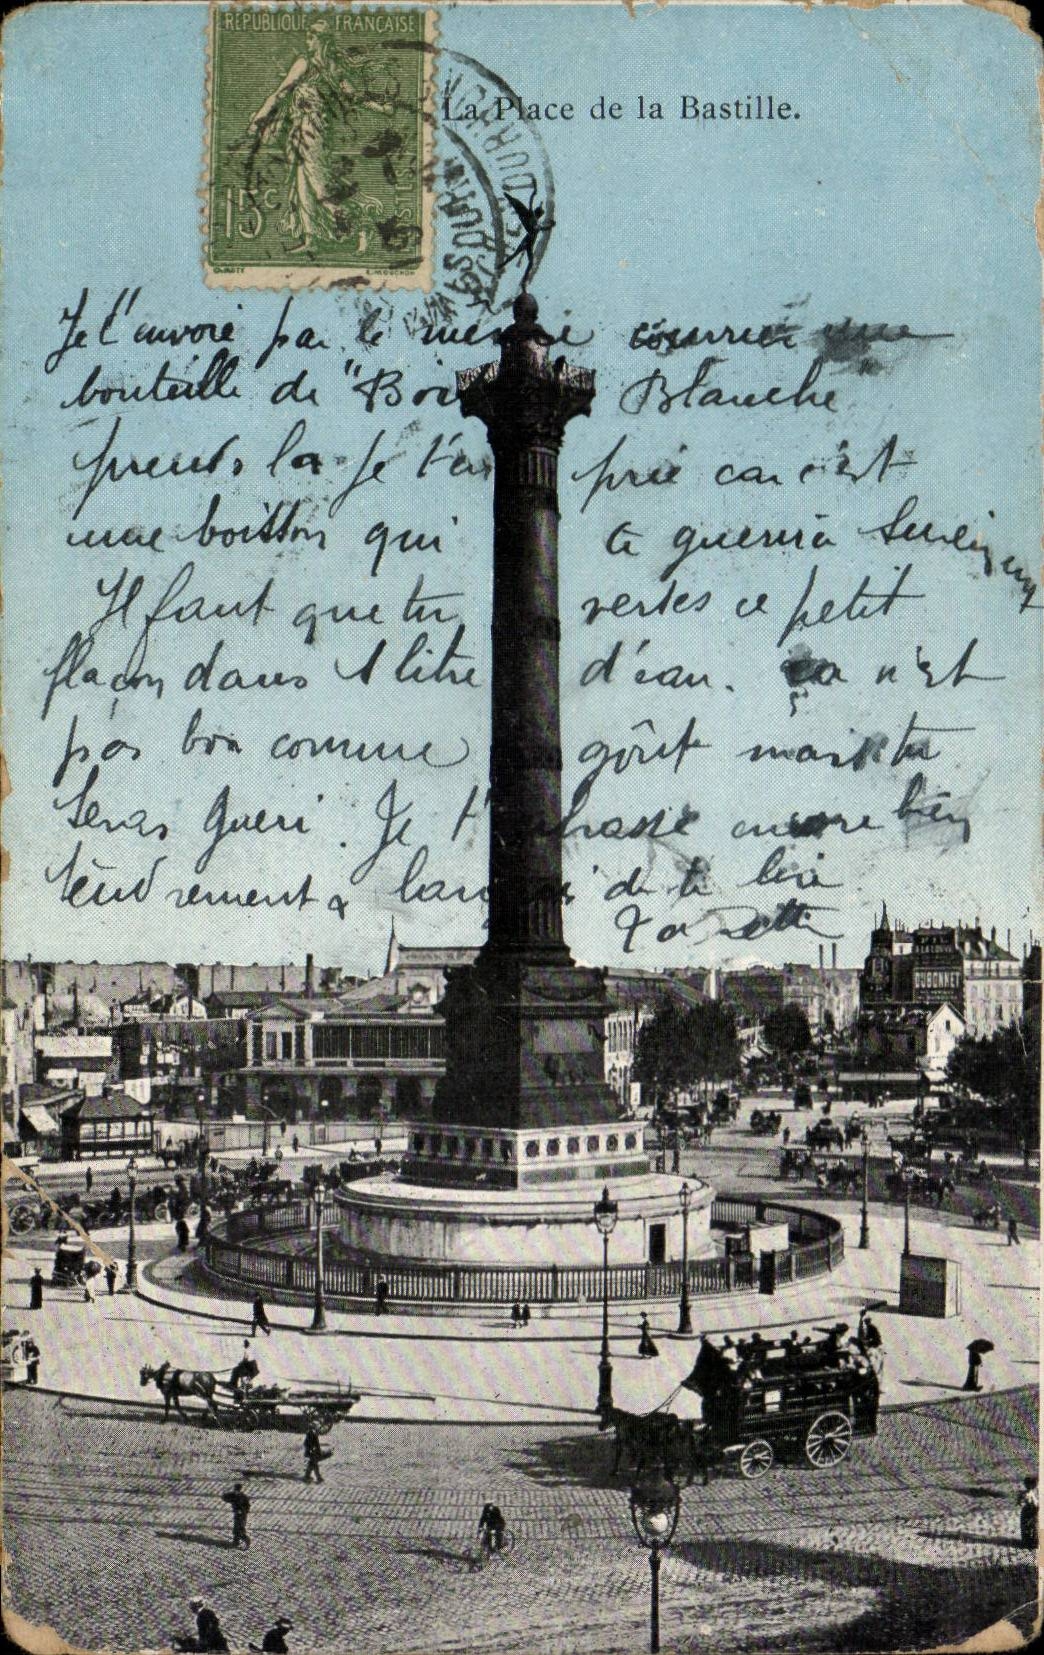 RÉPUBLIQUE FRANÇAISE
15c
POSTES
La Place de la Bastille.
Je t'envoie par le même courrier une
bouteille de "Boi Blanche"
prends la je t'en prie car c'est
une boisson qui te guerira
Il faut que tu verses ce petit
flaçon dans 1 litre d'eau. ça n'est
pas bon comme goût mais tu
seras gueri. Je t'embrasse encore bien
tendrement & de te lire
DUBONNET